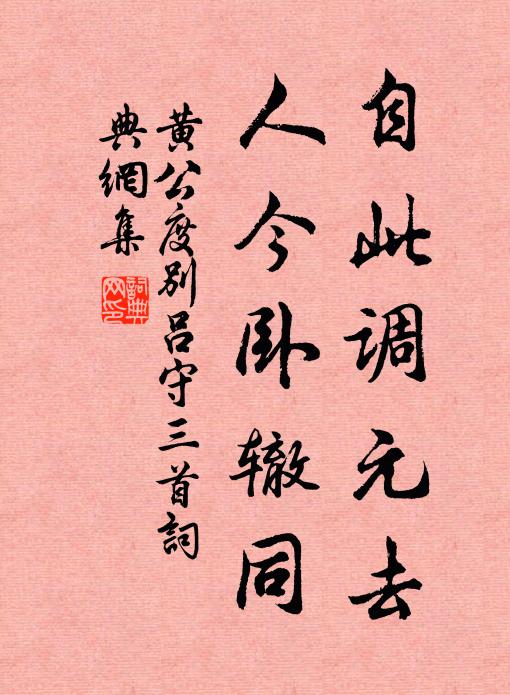 自此调元去
人今卧辙同
黄公度别吕守三首詞
典網集
詞典
网印